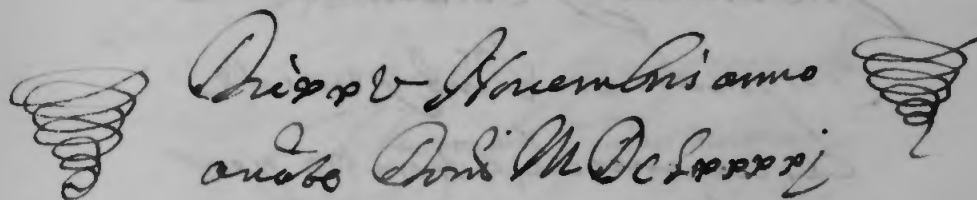 Die xxv Novembris anno
a nãto Domi M DC Lxxxxj